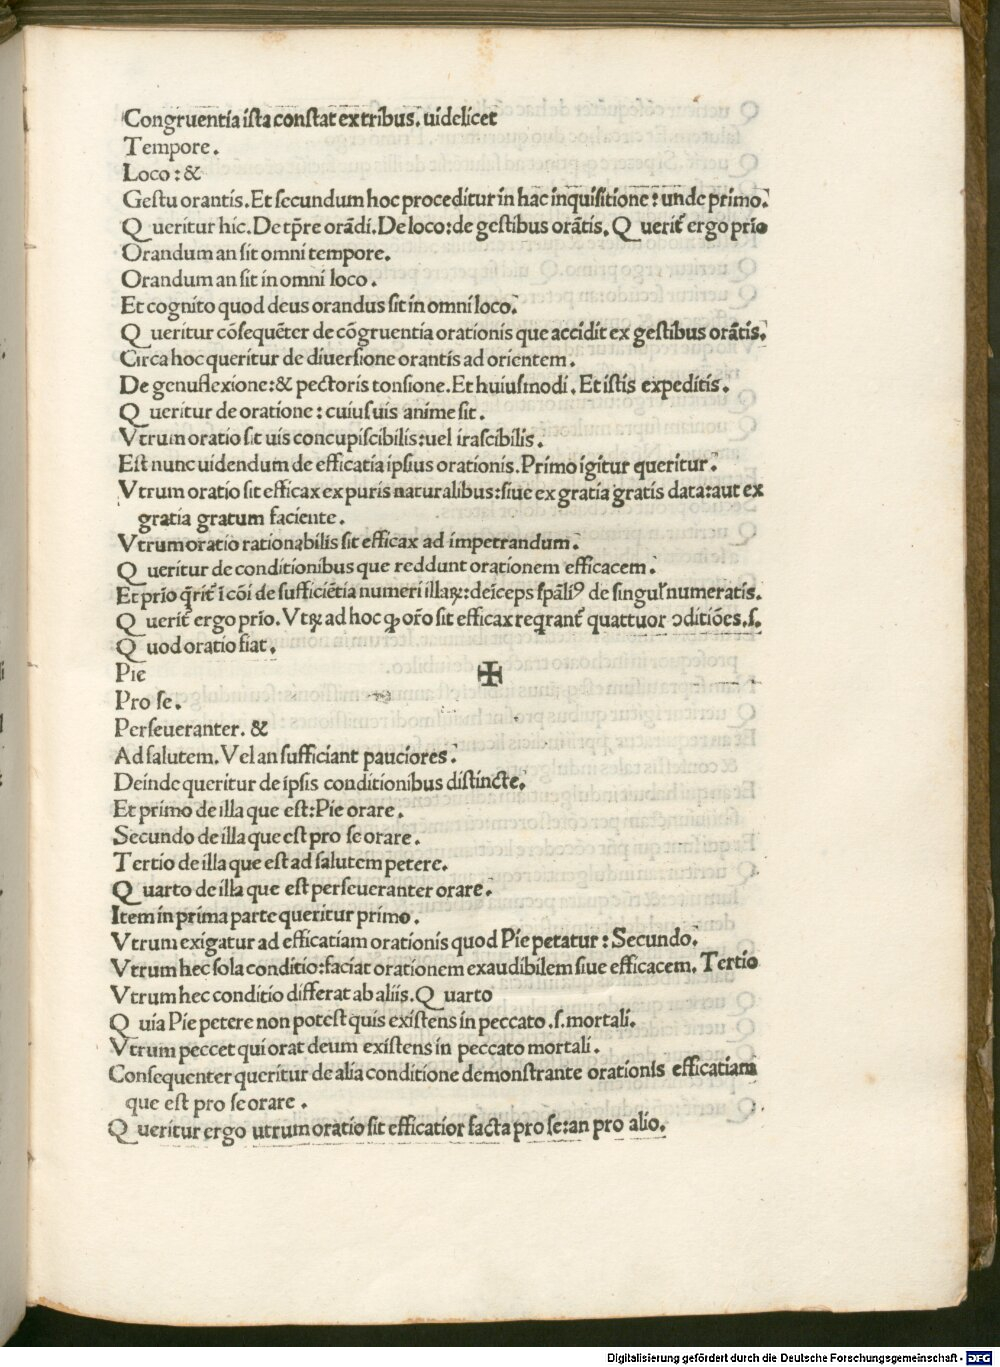 Congruentia ista constat ex tribus. uidelicet
Tempore.
Loco: &
Gestu orantis. Et secundum hoc proceditur in hac inquisitione: unde primo.
Queritur hic. De tp̄re orādi. De loco: de gestibus orātis. Querit᷑ ergo prīo
Orandum an sit omni tempore.
Orandum an sit in omni loco.
Et cognito quod deus orandus sit in omni loco.
Queritur cōsequēter de cōgruentia orationis que accidit ex gestibus orātis.
Circa hoc queritur de diuersione orantis ad orientem.
De genuflexione: & pectoris tonsione. Et huiusmodi. Et istis expeditis.
Queritur de oratione: cuiusuis anime sit.
Vtrum oratio sit uis concupiscibilis: uel irascibilis.
Est nunc uidendum de efficatia ipsius orationis. Primo igitur queritur.
Vtrum oratio sit efficax ex puris naturalibus: siue ex gratia gratis data: aut ex
gratia gratum faciente.
Vtrum oratio rationabilis sit efficax ad impetrandum.
Queritur de conditionibus que reddunt orationem efficacem.
Et prīo q̄rit᷑ ī cōi de sufficiētia numeri illaꝝ: deīceps sp̄aliꝰ de singul᷑ numeratis.
Querit᷑ ergo prīo. Vtꝝ ad hoc ꝙ or̄o sit efficax reqrant᷑ quattuor ↄditiōes. s.
Quod oratio fiat.
Pie ✠
Pro se.
Perseueranter. &
Ad salutem. Vel an sufficiant pauciores.
Deinde queritur de ipsis conditionibus distincte.
Et primo de illa que est: Pie orare.
Secundo de illa que est pro se orare.
Tertio de illa que est ad salutem petere.
Quarto de illa que est perseueranter orare.
Item in prima parte queritur primo.
Vtrum exigatur ad efficatiam orationis quod Pie petatur: Secundo.
Vtrum hec sola conditio: faciat orationem exaudibilem siue efficacem. Tertio
Vtrum hec conditio differat ab aliis. Quarto
Quia Pie petere non potest quis existens in peccato .s. mortali.
Vtrum peccet qui orat deum existens in peccato mortali.
Consequenter queritur de alia conditione demonstrante orationis efficatiam
que est pro se orare.
Queritur ergo utrum oratio sit efficatior facta pro se: an pro alio.
Digitalisierung gefördert durch die Deutsche Forschungsgemeinschaft - DFG